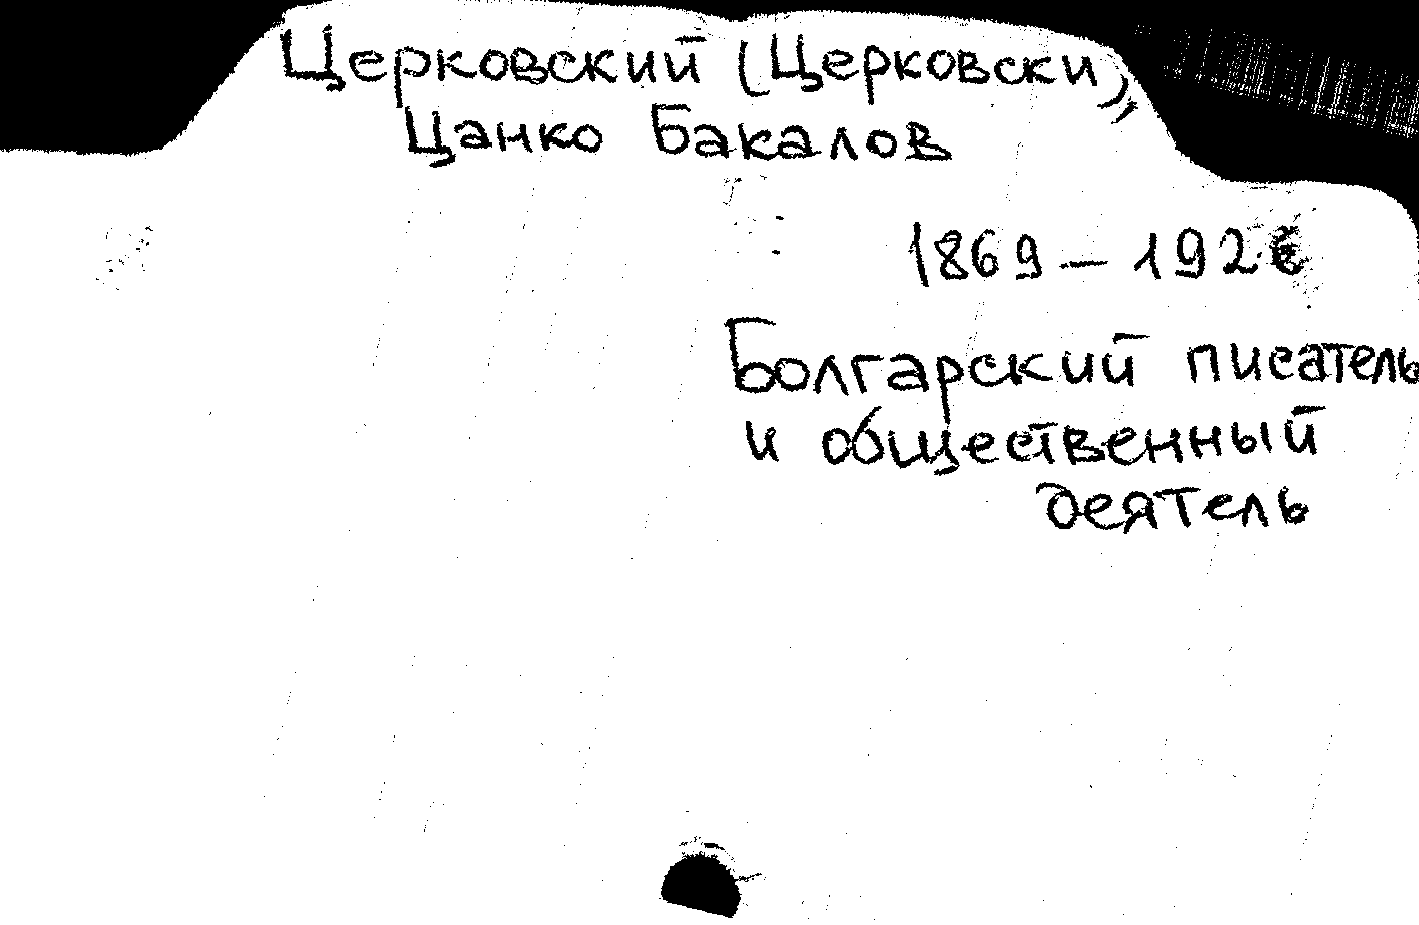 Церковский (Церковски),
Цанко Бакалов
1869 – 1926
Болгарский писатель
и общественный
деятель